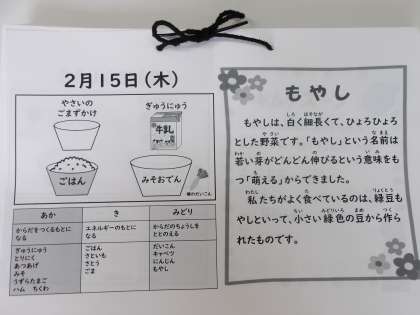 2月15日(木)
やさいの
ごまずかけ
ぎゅうにゅう
牛乳
ごはん
みそおでん
あか
き
みどり
からだをつくるもとに
なる
エネルギーのもとに
なる
からだのちょうしを
ととのえる
ぎゅうにゅう
とりにく
あつあげ
みそ
うずらたまご
ハム ちくわ
ごはん
さといも
さとう
ごま
だいこん
キャベツ
にんじん
もやし
もやし
もやしは、白く細長くて、ひょろひょろ
とした野菜です。「もやし」という名前は
若い芽がどんどん伸びるという意味をも
つ「萌える」からできました。
私たちがよく食べているのは、緑豆も
やしといって、小さい緑色の豆から作ら
れたものです。